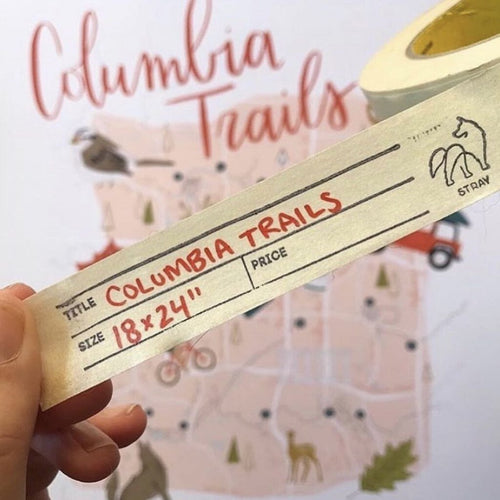 Columbia
Trails
STRAY
TITLE COLUMBIA TRAILS
SIZE 18x24" PRICE